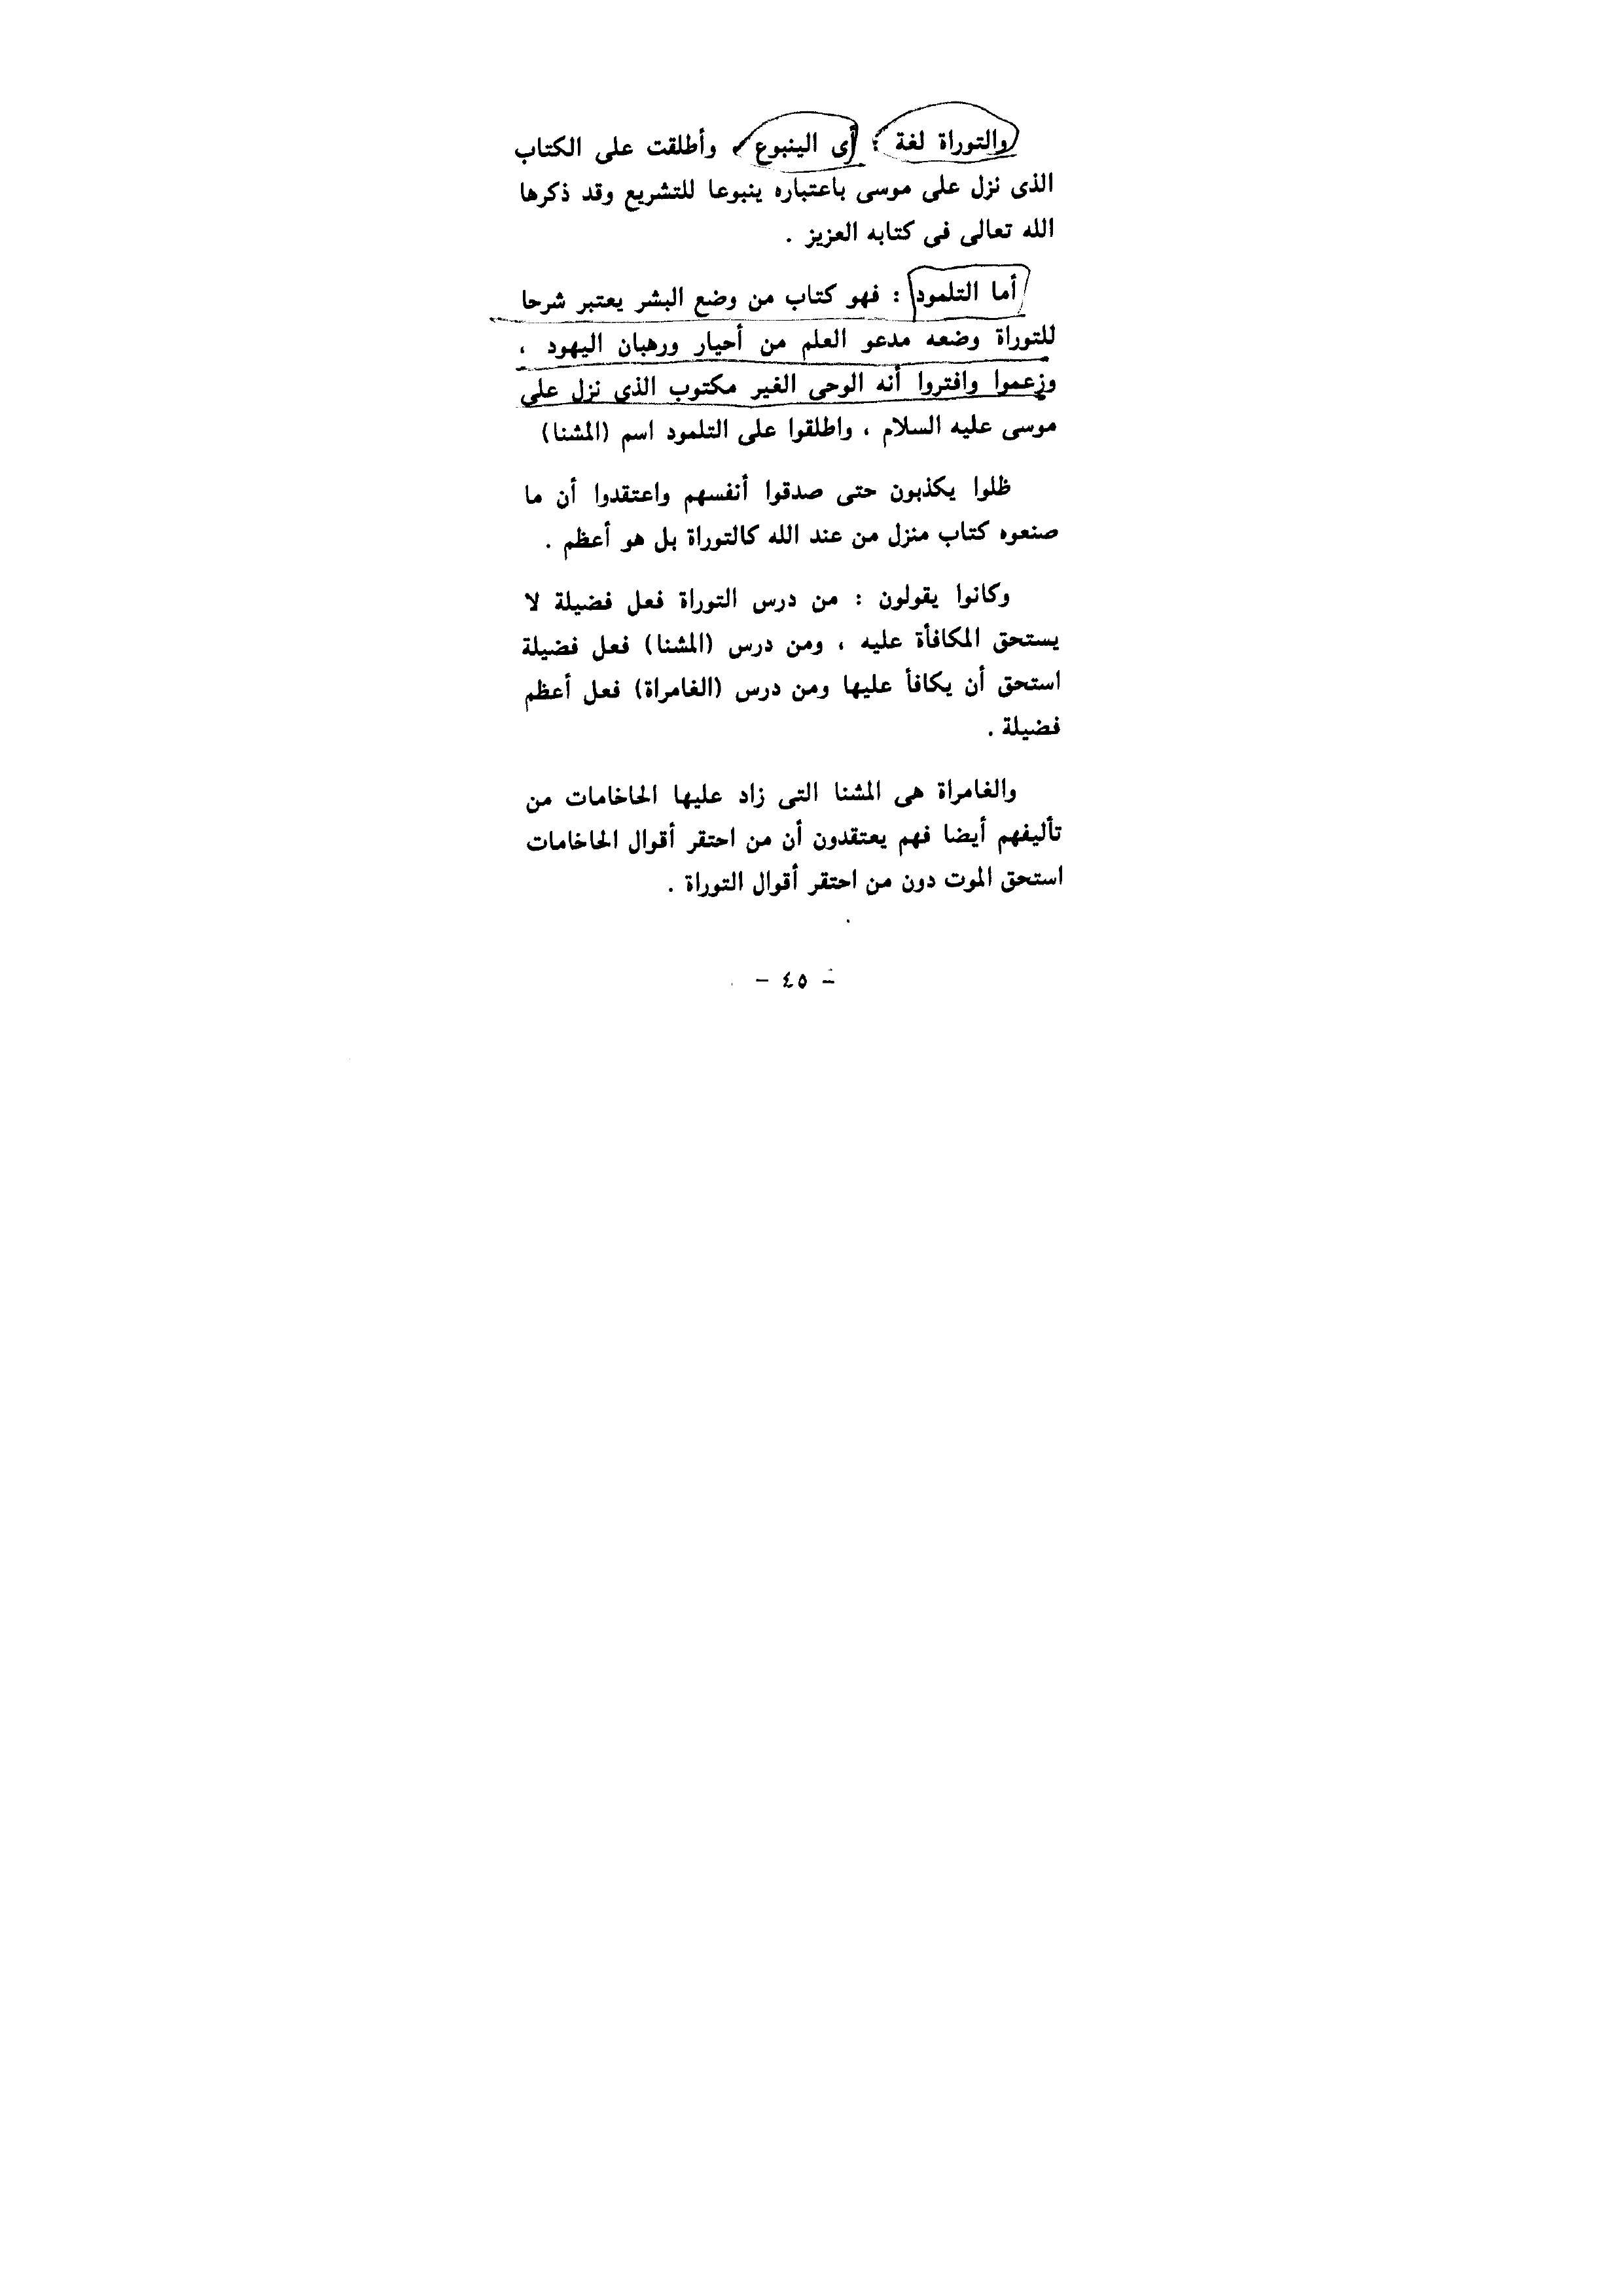 والتوراة لغة : أى الينبوع ، وأطلقت على الكتاب
الذى نزل على موسى باعتباره ينبوعا للتشريع وقد ذكرها
الله تعالى فى كتابه العزيز .
أما التلمود : فهو كتاب من وضع البشر يعتبر شرحا
للتوراة وضعه مدعو العلم من أحبار ورهبان اليهود ،
وزعموا وافتروا أنه الوحى الغير مكتوب الذى نزل على
موسى عليه السلام ، واطلقوا على التلمود اسم (المشنا)
ظلوا يكذبون حتى صدقوا أنفسهم واعتقدوا أن ما
صنعوه كتاب منزل من عند الله كالتوراة بل هو أعظم .
وكانوا يقولون : من درس التوراة فعل فضيلة لا
يستحق المكافأة عليه ، ومن درس (المشنا) فعل فضيلة
استحق أن يكافأ عليها ومن درس (الغامراة) فعل أعظم
فضيلة .
والغامراة هى المشنا التى زاد عليها الحاخامات من
تأليفهم أيضا فهم يعتقدون أن من احتقر أقوال الحاخامات
استحق الموت دون من احتقر أقوال التوراة .
- ٤٥ -